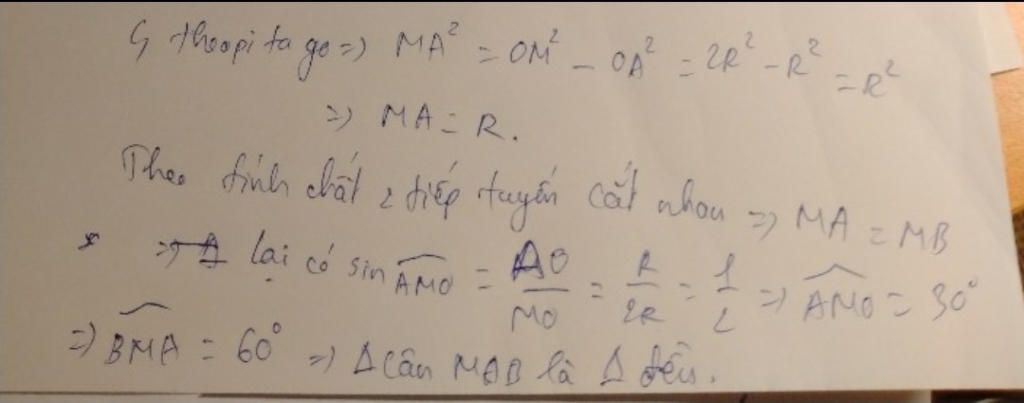 theo pi ta go => MA² = OM² - OA² = 2R² - R² = R²
=> MA = R.
Theo tính chất 2 tiếp tuyến cắt nhau => MA = MB
* lại có sin \widehat{AMO} = \frac{AO}{MO} = \frac{R}{2R} = \frac{1}{2} => \widehat{AMO} = 30°
=> \widehat{BMA} = 60° => Δ cân MAB là Δ đều.